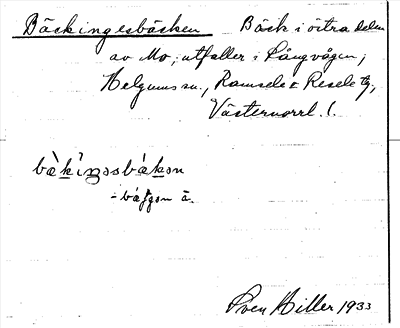 Bäckingesbäcken Bäck i östra delen
av Mo, utfaller i Långvågen,
Helgums sn., Ramsele & Resele tg,
Västernorrl. l.
bæ̀kiŋəsbækən
Sven Hiller 1933